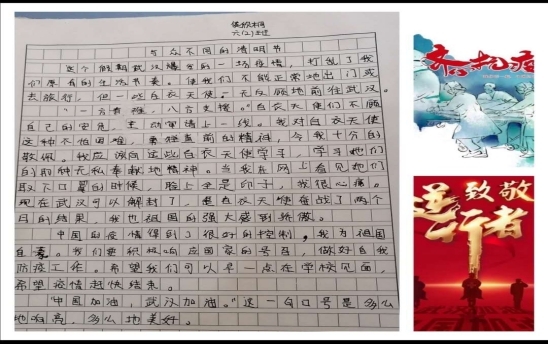 六(2)班
与众不同的清明节
这个假期武汉爆发的一场疫情，打乱了我
们原有的生活节奏。使我们不能正常地出门或
去旅行，但一些白衣天使，无反顾地前往武汉。
"一方有难，八方支援。"白衣天使们不顾
自己的安危，主动审请上一线。我对白衣天使
这种不怕困难，勇往直前的精神，令我十分的
敬佩。我应该向这些白衣天使学习，学习她们
的那种无私奉献地精神。当我在网上看见她们
取下口罩的时候，脸上全是印子，我很心痛。
现在武汉可以解封了，是白衣天使奋战了两个
月的结果，我也祖国的强大感到骄傲。
中国的疫情得到了很好的控制，我为祖国
自豪。我们要积极响应国家的号召，做好自我
防疫工作。希望我们可以早一点在学校见面，
希望疫情赶快结束。
"中国加油，武汉加油。"这一句口号是多么
地响亮，多么地美好。
齐抗疫
致敬
逆行者